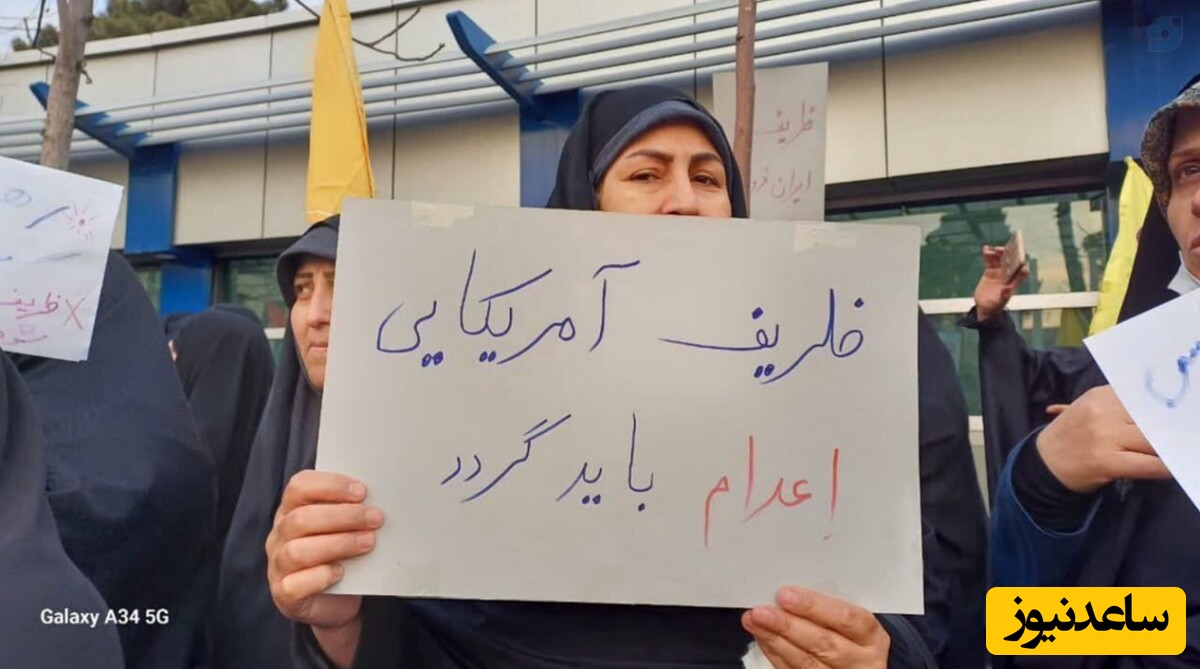 ظریف آمریکایی
اعدام باید گردد
ظریف
ایران فرو
ظریف
Galaxy A34 5G
ساعدنیوز